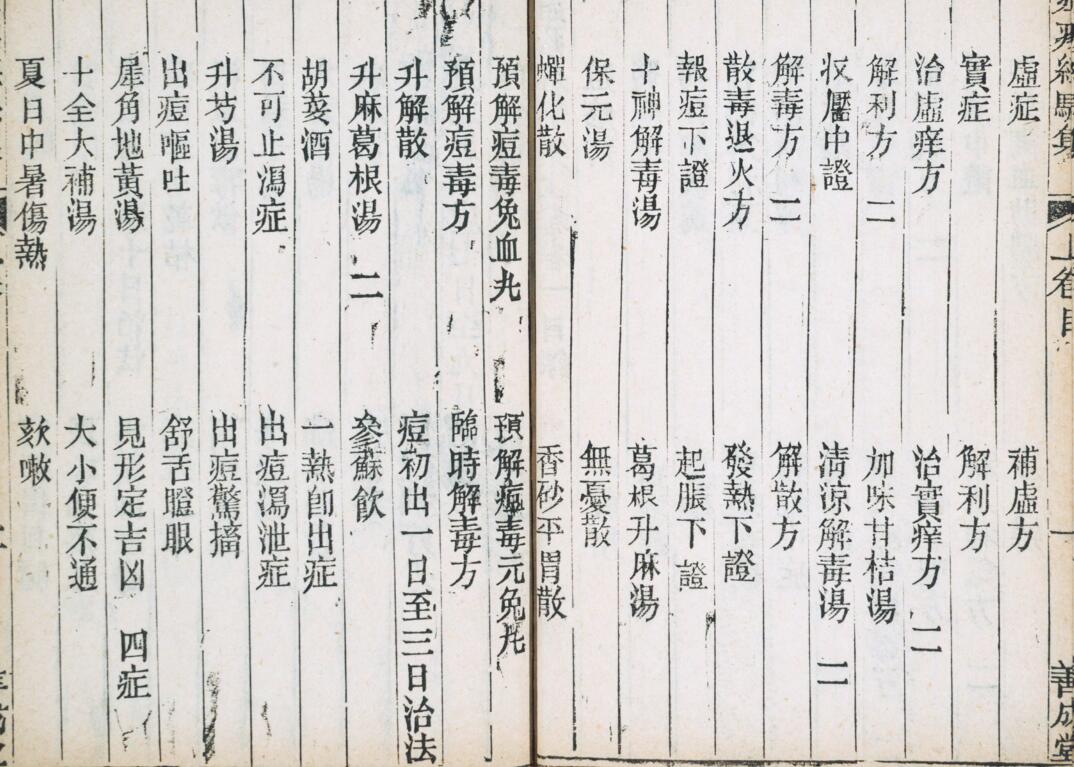 經驗集 上卷目 一 善成堂
虛症 補虛方
實症 解利方
治虛痒方 治實痒方 二
解利方 二 加味甘桔湯
收靨中證 清涼解毒湯 二
解毒方 二 解散方
散毒退火方 發熱下證
報痘下證 起脹下證
十神解毒湯 葛根升麻湯
保元湯 無憂散
蟬化散 香砂平胃散
預解痘毒兔血丸 預解痘毒元兔丸
預解痘毒方 臨時解毒方
升解散 痘初出一日至三日治法
升麻葛根湯 二 參蘇飲
胡荽酒 一熱卽出症
不可止瀉症 出痘瀉泄症
升芍湯 出痘驚搐
出痘嘔吐 舒舌瞪眼
犀角地黃湯 見形定吉凶 四症
十全大補湯 大小便不通
夏日中暑傷熱 欬嗽